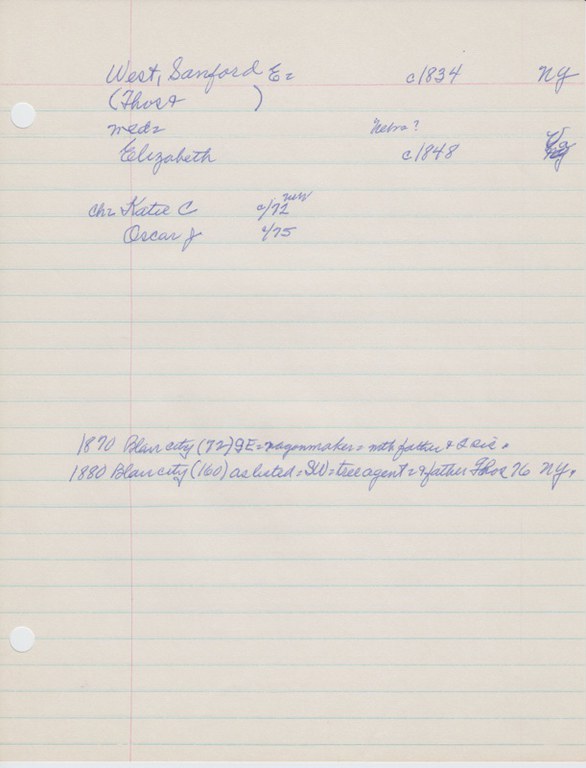 West, Sanford E= c/1834 NY
(Thos+ )
md= Nebra?
Elizabeth c/1848
ch= Katie C c/72 neb
Oscar J c/75
1870 Blair city (72) SE= wagonmaker = with father + 2 sis.
1880 Blair city (160) as listed = SW = tree agent = + father Thos 76 NY.